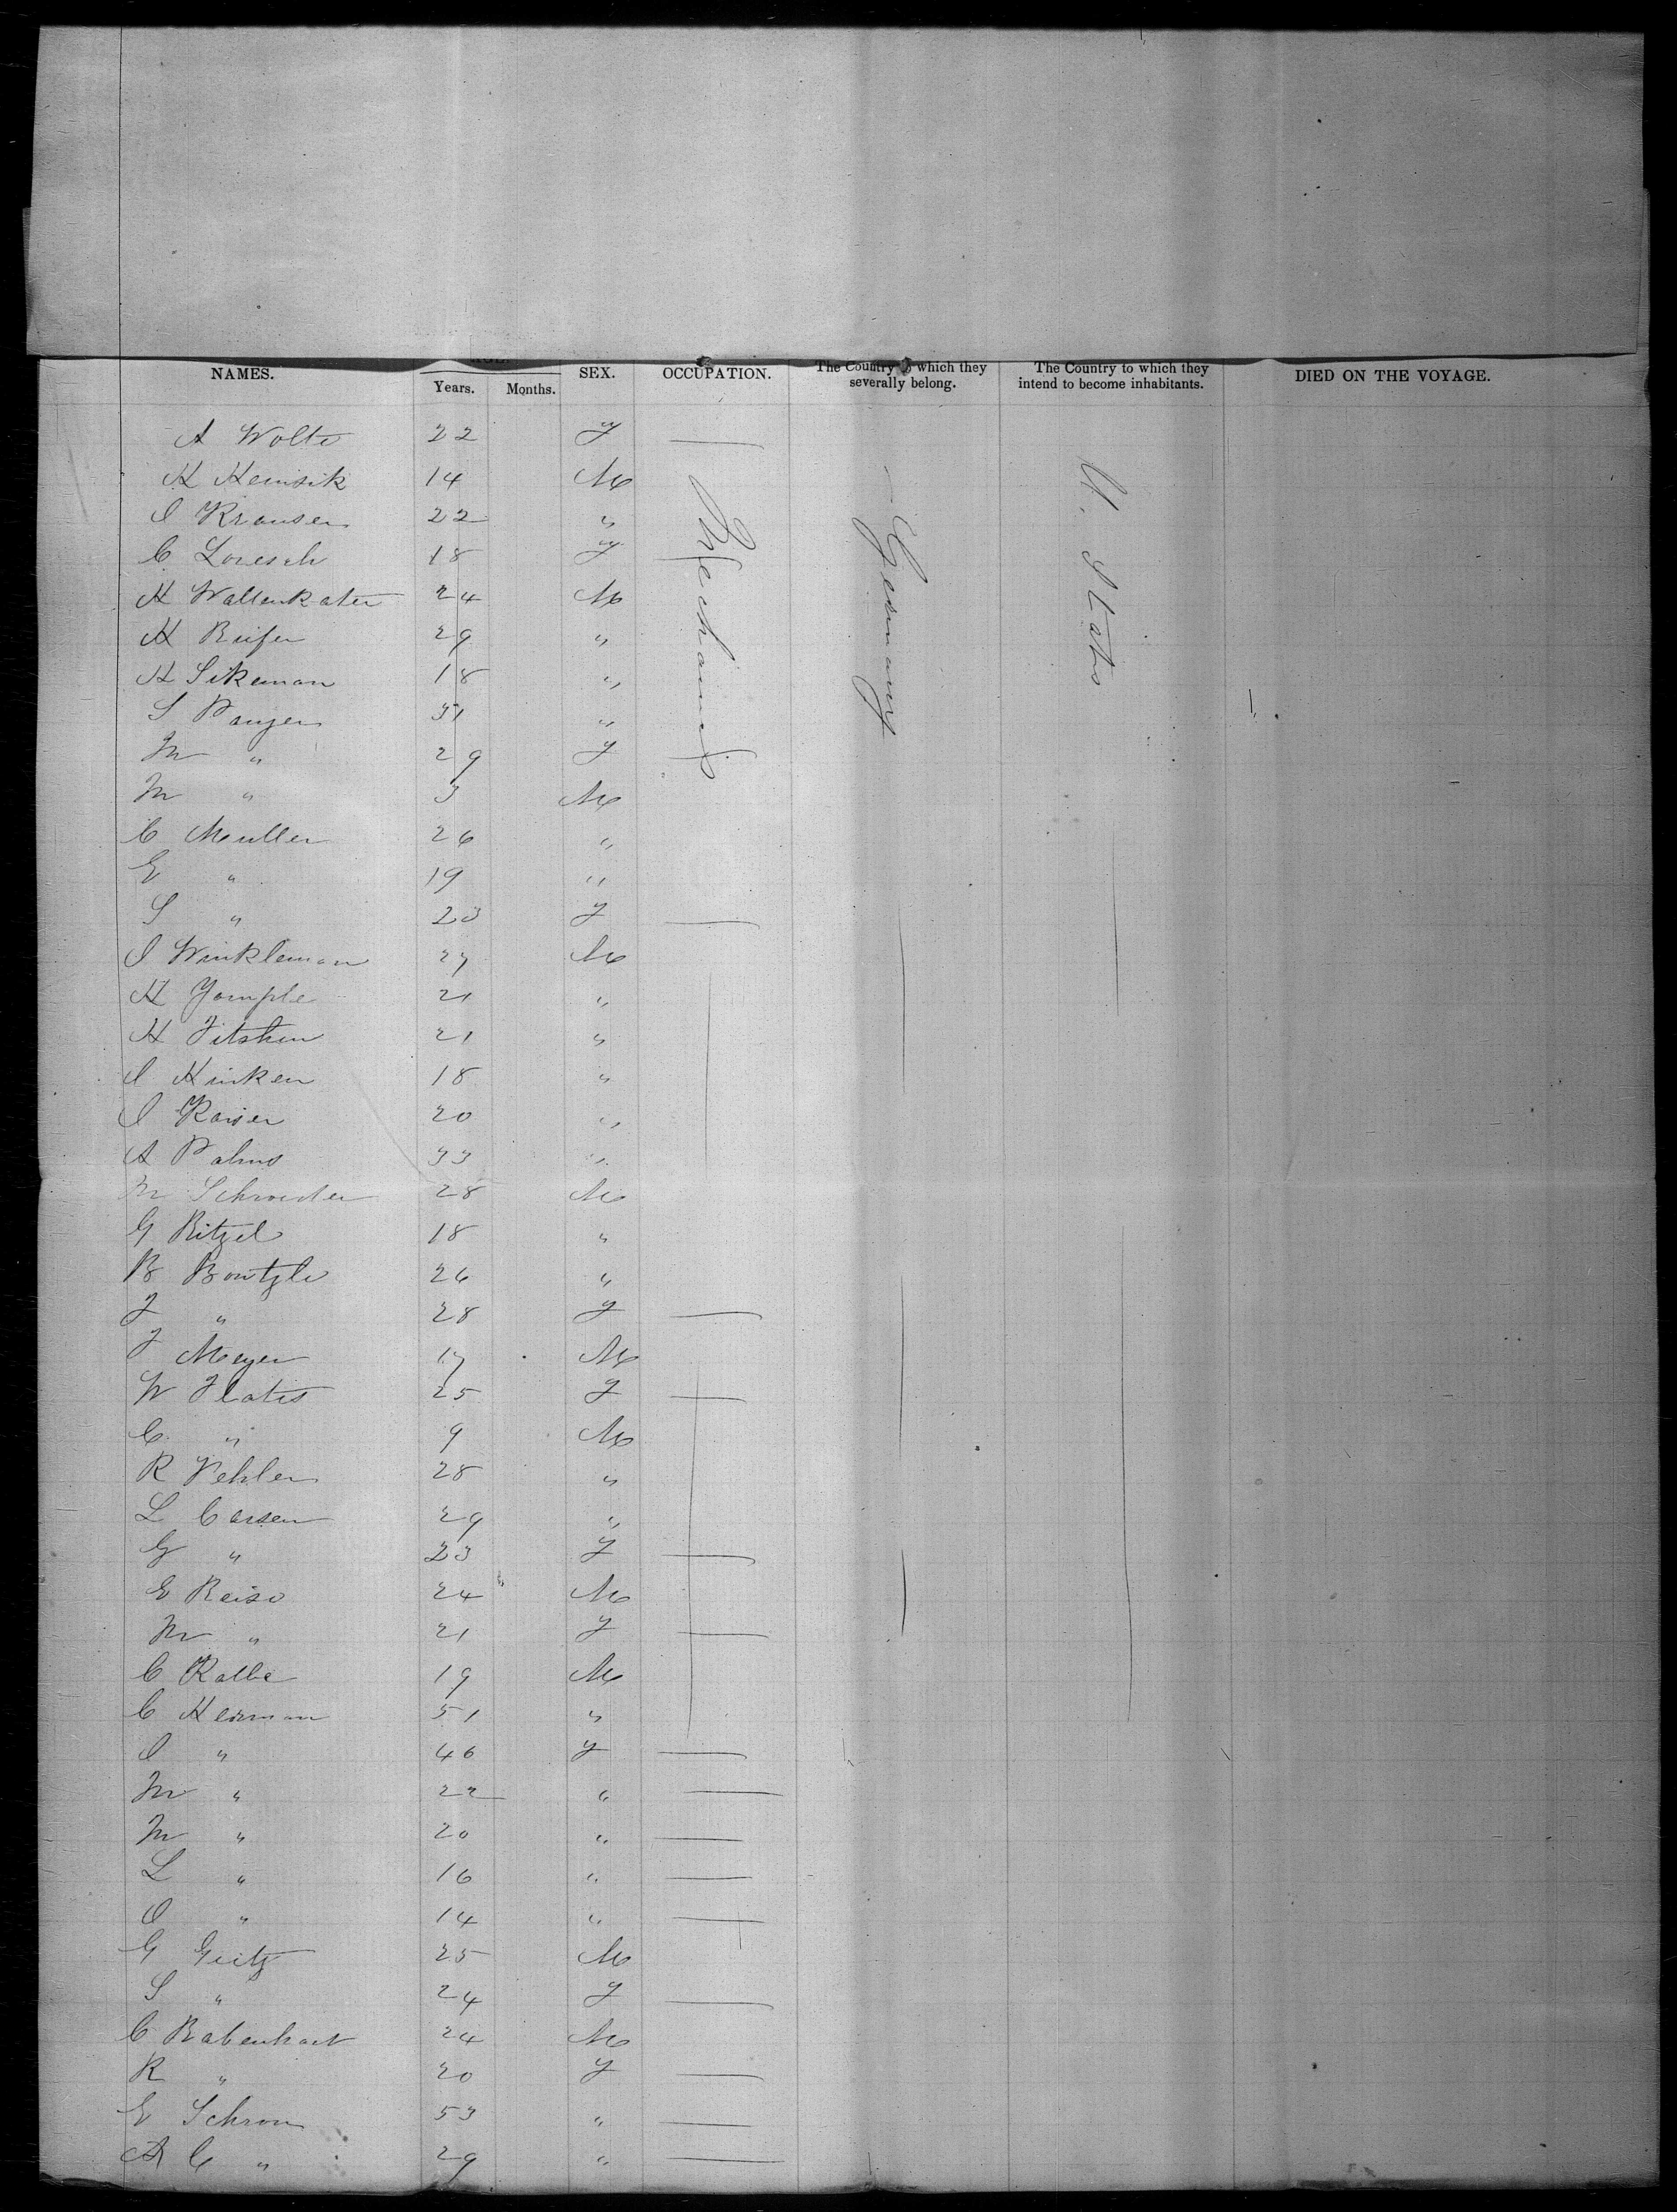 NAMES. Years. Months. SEX. OCCUPATION. The Country which they severally belong. The Country to which they intend to become inhabitants. DIED ON THE VOYAGE.
A Wolte 22 F —
H Heinsik 14 M
I Krausen 22 "
C Loresch 18 F
H Wallenkater 24 M
H Riefer 29 "
H Sikeman 18 "
S Panzer 31 "
M " 29 F
M " 3 M
Mechanics
Germany
U. States
C Muller 26 "
E " 19 "
S " 23 F —
I Winkleman 27 M
H Yomple 21 "
H Fitshen 21 "
I Hinken 18 "
I Kaiser 20 "
A Palms 33 "
M Schroeder 28 M
G Ritzel 18 "
B Bontzle 26 "
F " 28 F —
F Meyer 17 M
W Flates 25 F —
C " 9 M
R Pehler 28 "
L Carsen 29 "
G " 23 F —
E Reiso 24 M
M " 21 F —
C Kalbe 19 M
C Herman 51 "
I " 46 F —
M " 22 " —
M " 20 " —
L " 16 " —
O " 14 " —
G Geitz 25 M
S " 24 F —
C Babenhart 24 M
R " 20 F —
E Schron 53 " —
A C " 29 " —